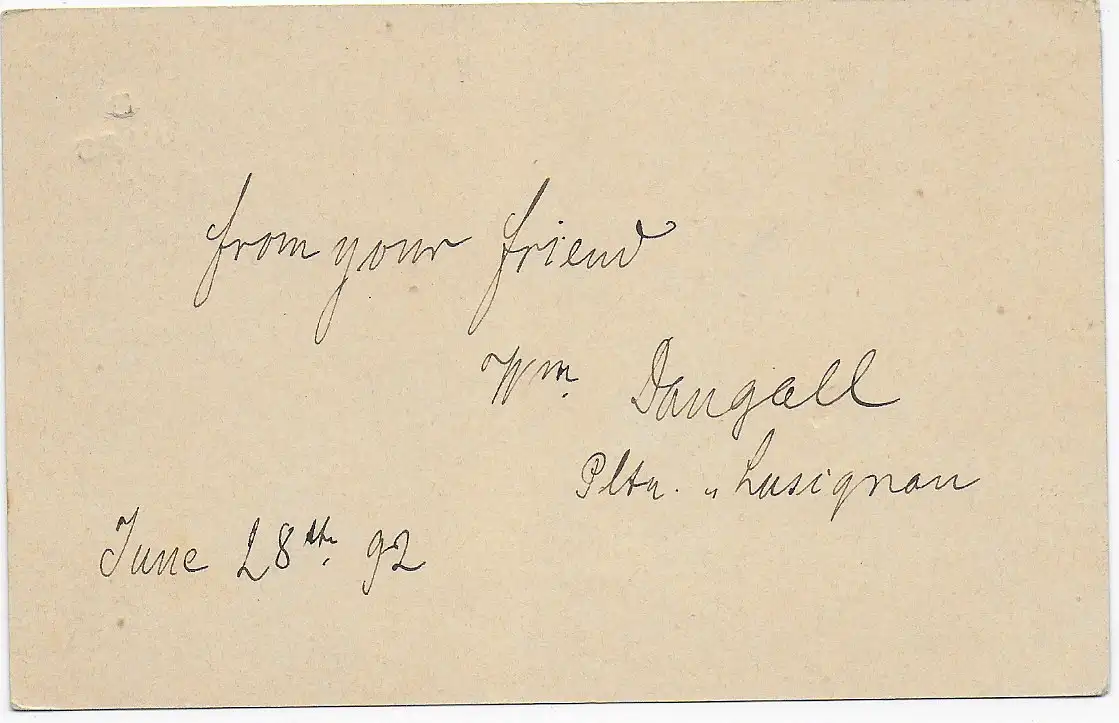 from your friend
Wm. Dougall
Pltn. „ Lusignan
June 28th. 92